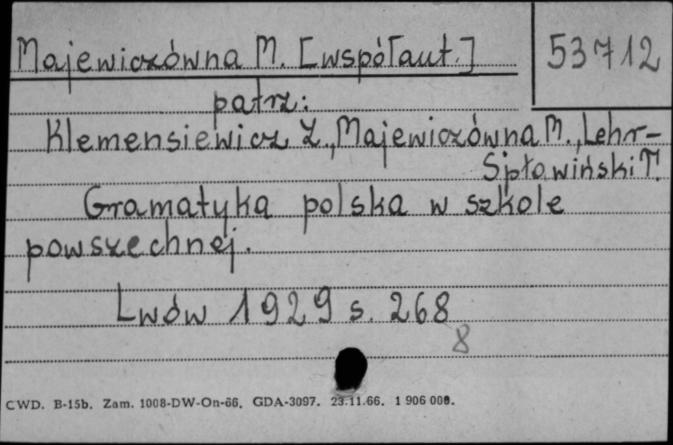 Majewiczówna M. [współaut.] 53712
patrz:
Klemensiewicz Z., Majewiczówna M., Lehr-
Spławiński T.
Gramatyka polska w szkole
powszechnej.
Lwów 1929 s. 268
8
CWD. B-15b. Zam. 1008-DW-On-66. GDA-3097. 23.11.66. 1 906 000.